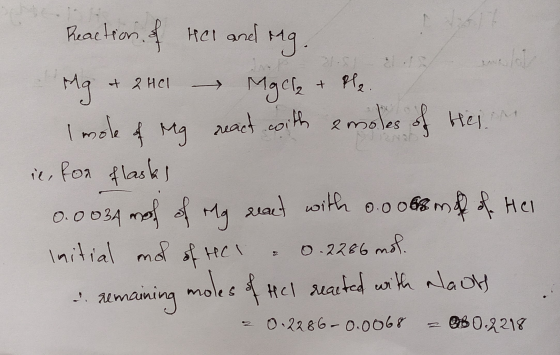 Reaction of HCl and Mg.
Mg + 2HCl → MgCl2 + H2.
1 mole of Mg react with 2 moles of HCl.
ie, for flask 1
0.0034 mol of Mg react with 0.0068 mol of HCl
Initial mol of HCl = 0.2286 mol.
∴ remaining moles of HCl reacted with NaOH
= 0.2286 - 0.0068 = 0.2218